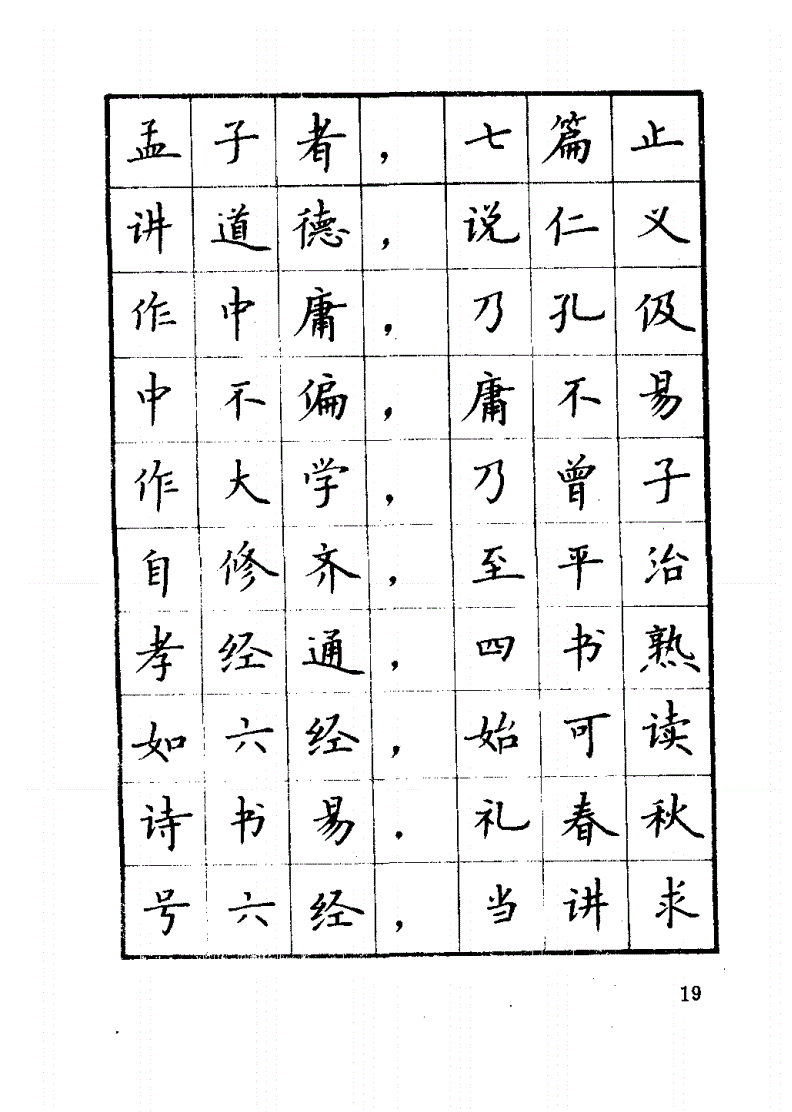 孟子者，七篇止
讲道德，说仁义
作中庸，乃孔伋
中不偏，庸不易
作大学，乃曾子
自修齐，至平治
孝经通，四书熟
如六经，始可读
诗书易．礼春秋
号六经，当讲求
19